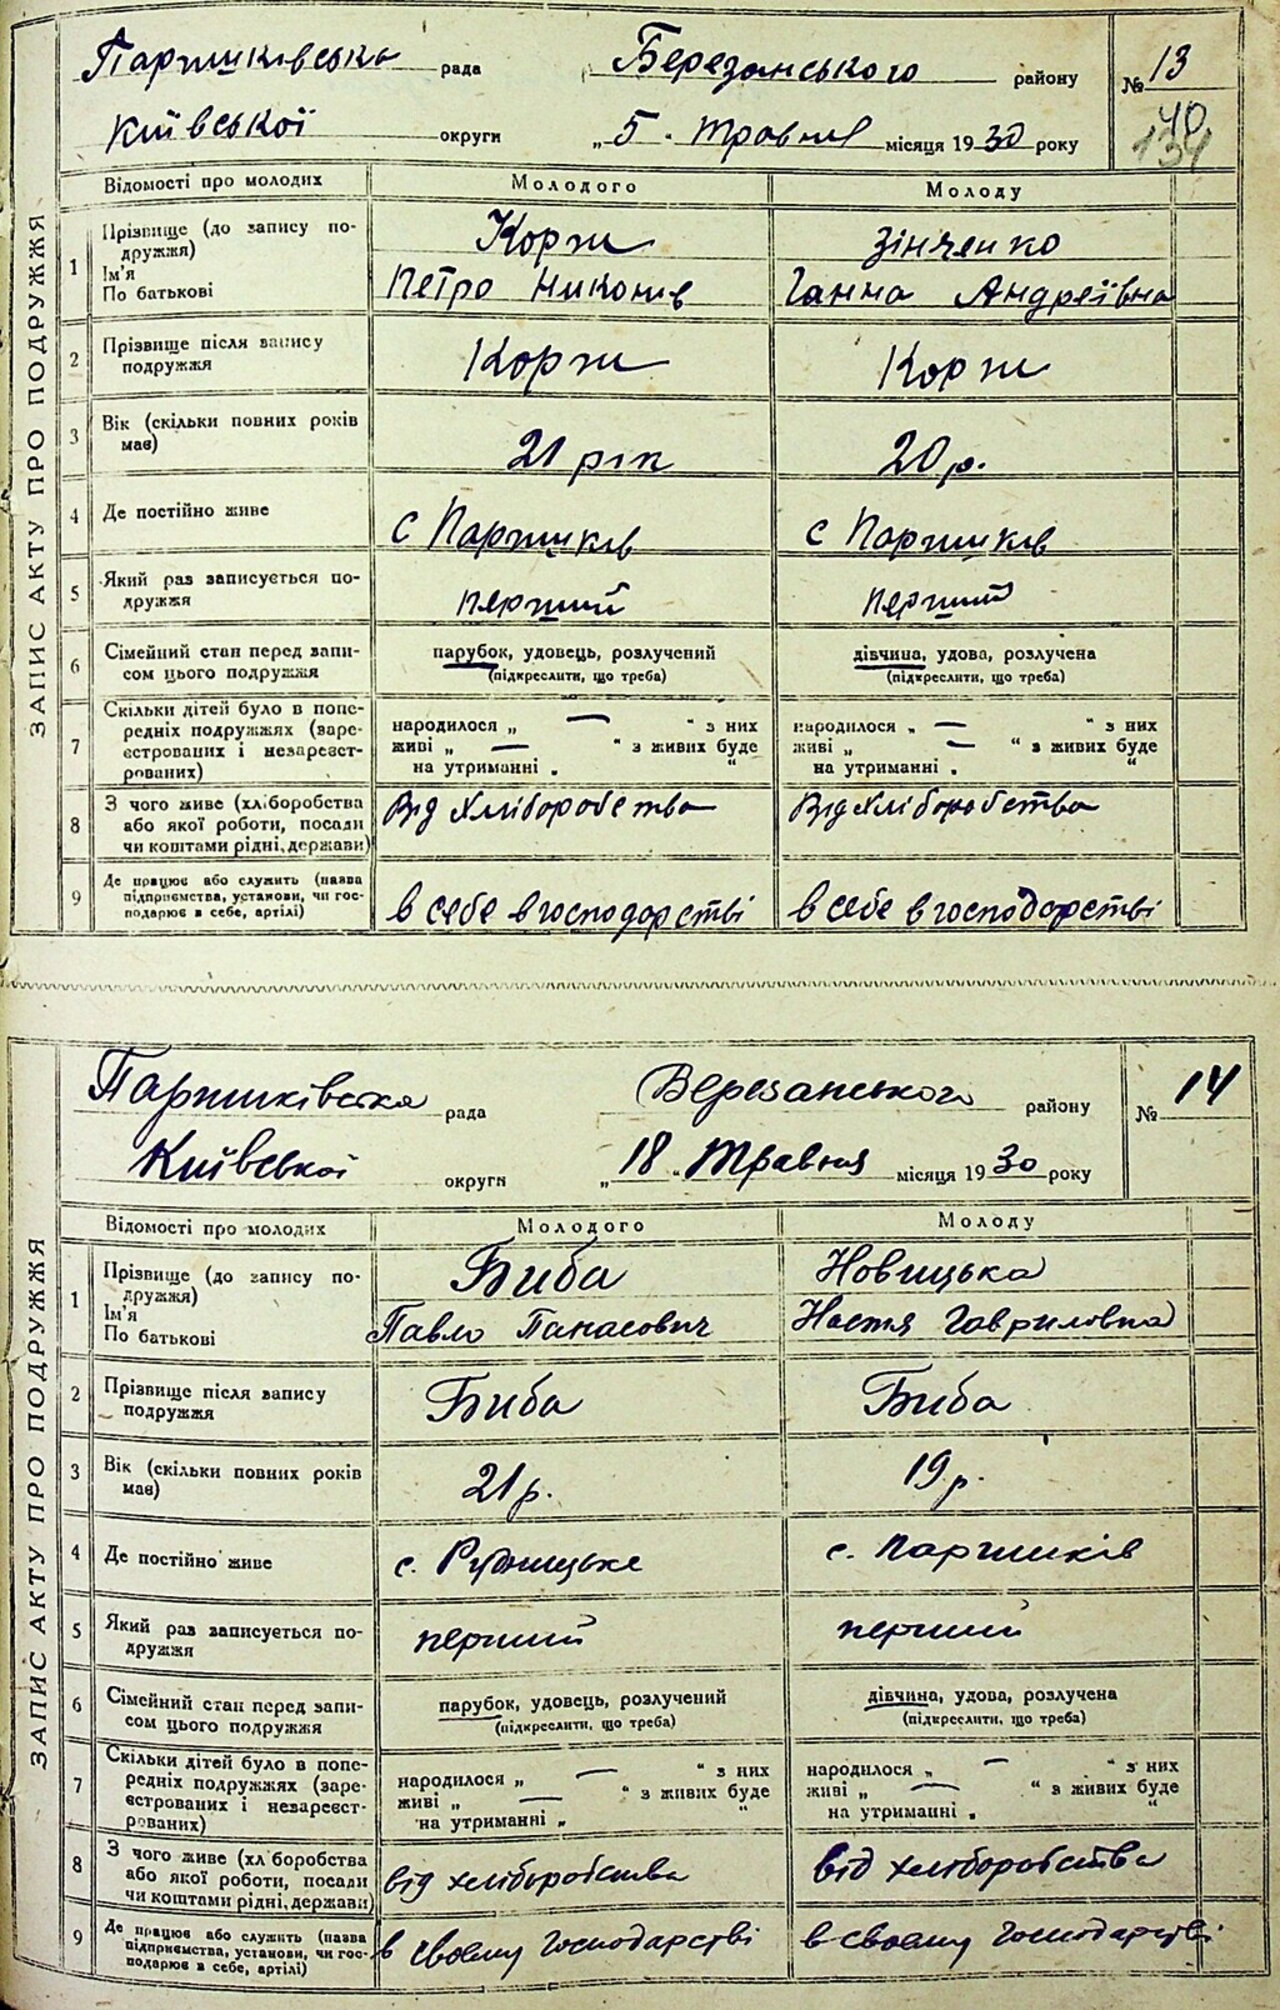 ЗАПИС АКТУ ПРО ПОДРУЖЖЯ
Паришківська рада Березанського району № 13
Київської округи „5" травня місяця 1930 року
Відомості про молодих Молодого Молоду
1 Прізвище (до запису по- Корж Зінченко
дружжя)
Ім'я Петро Никонів Ганна Андреївна
По батькові
2 Прізвище після запису Корж Корж
подружжя
3 Вік (скільки повних років 21 рік 20 р.
має)
4 Де постійно живе с Паришків с Паришків
5 Який раз записується по- перший перший
дружжя
6 Сімейний стан перед запи- парубок, удовець, розлучений дівчина, удова, розлучена
сом цього подружжя (підкреслити, що треба) (підкреслити, що треба)
7 Скільки дітей було в попе-
редніх подружжях (заре- народилося „ — " з них народилося „ — " з них
єстрованих і незареєст- живі „ — " з живих буде живі „ — " з живих буде
рованих) на утриманні „ " на утриманні „ "
8 З чого живе (хліборобства Від хліборобства Від хліборобства
або якої роботи, посади
чи коштами рідні, держави)
9 Де працює або служить (назва
підприємства, установи, чи гос- в себе в господарстві в себе в господарстві
подарює в себе, артілі)
ЗАПИС АКТУ ПРО ПОДРУЖЖЯ
Паришківська рада Березанського району № 14
Київської округи „18" Травня місяця 1930 року
Відомості про молодих Молодого Молоду
1 Прізвище (до запису по- Биба Новицька
дружжя)
Ім'я Павло Панасович Настя Гавриловна
По батькові
2 Прізвище після запису Биба Биба
подружжя
3 Вік (скільки повних років 21 р. 19 р.
має)
4 Де постійно живе с. Рудницьке с. Паришків
5 Який раз записується по- перший перший
дружжя
6 Сімейний стан перед запи- парубок, удовець, розлучений дівчина, удова, розлучена
сом цього подружжя (підкреслити, що треба) (підкреслити, що треба)
7 Скільки дітей було в попе-
редніх подружжях (заре- народилося „ — " з них народилося „ — " з них
єстрованих і незареєст- живі „ — " з живих буде живі „ — " з живих буде
рованих) на утриманні „ " на утриманні „ "
8 З чого живе (хліборобства від хліборобства від хліборобства
або якої роботи, посади
чи коштами рідні, держави)
9 Де працює або служить (назва
підприємства, установи, чи гос- в своєму господарстві в своєму господарстві
подарює в себе, артілі)